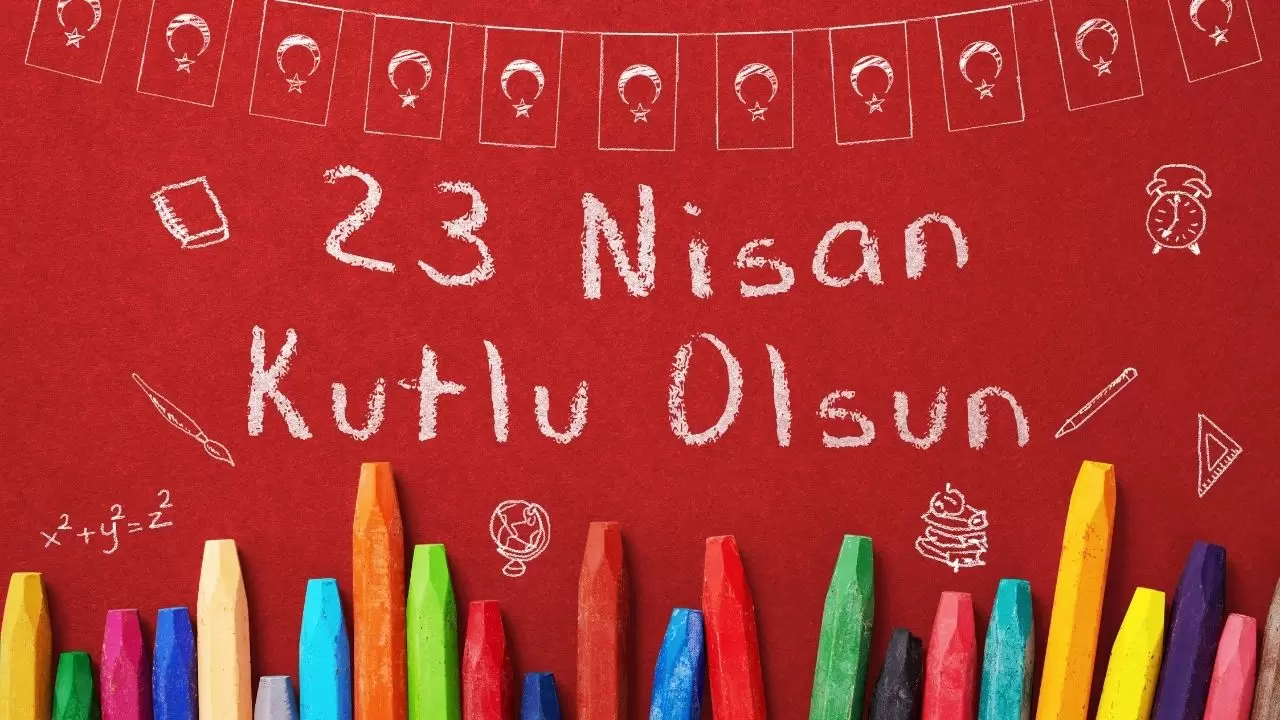 23 Nisan
Kutlu Olsun
x²+y²=z²